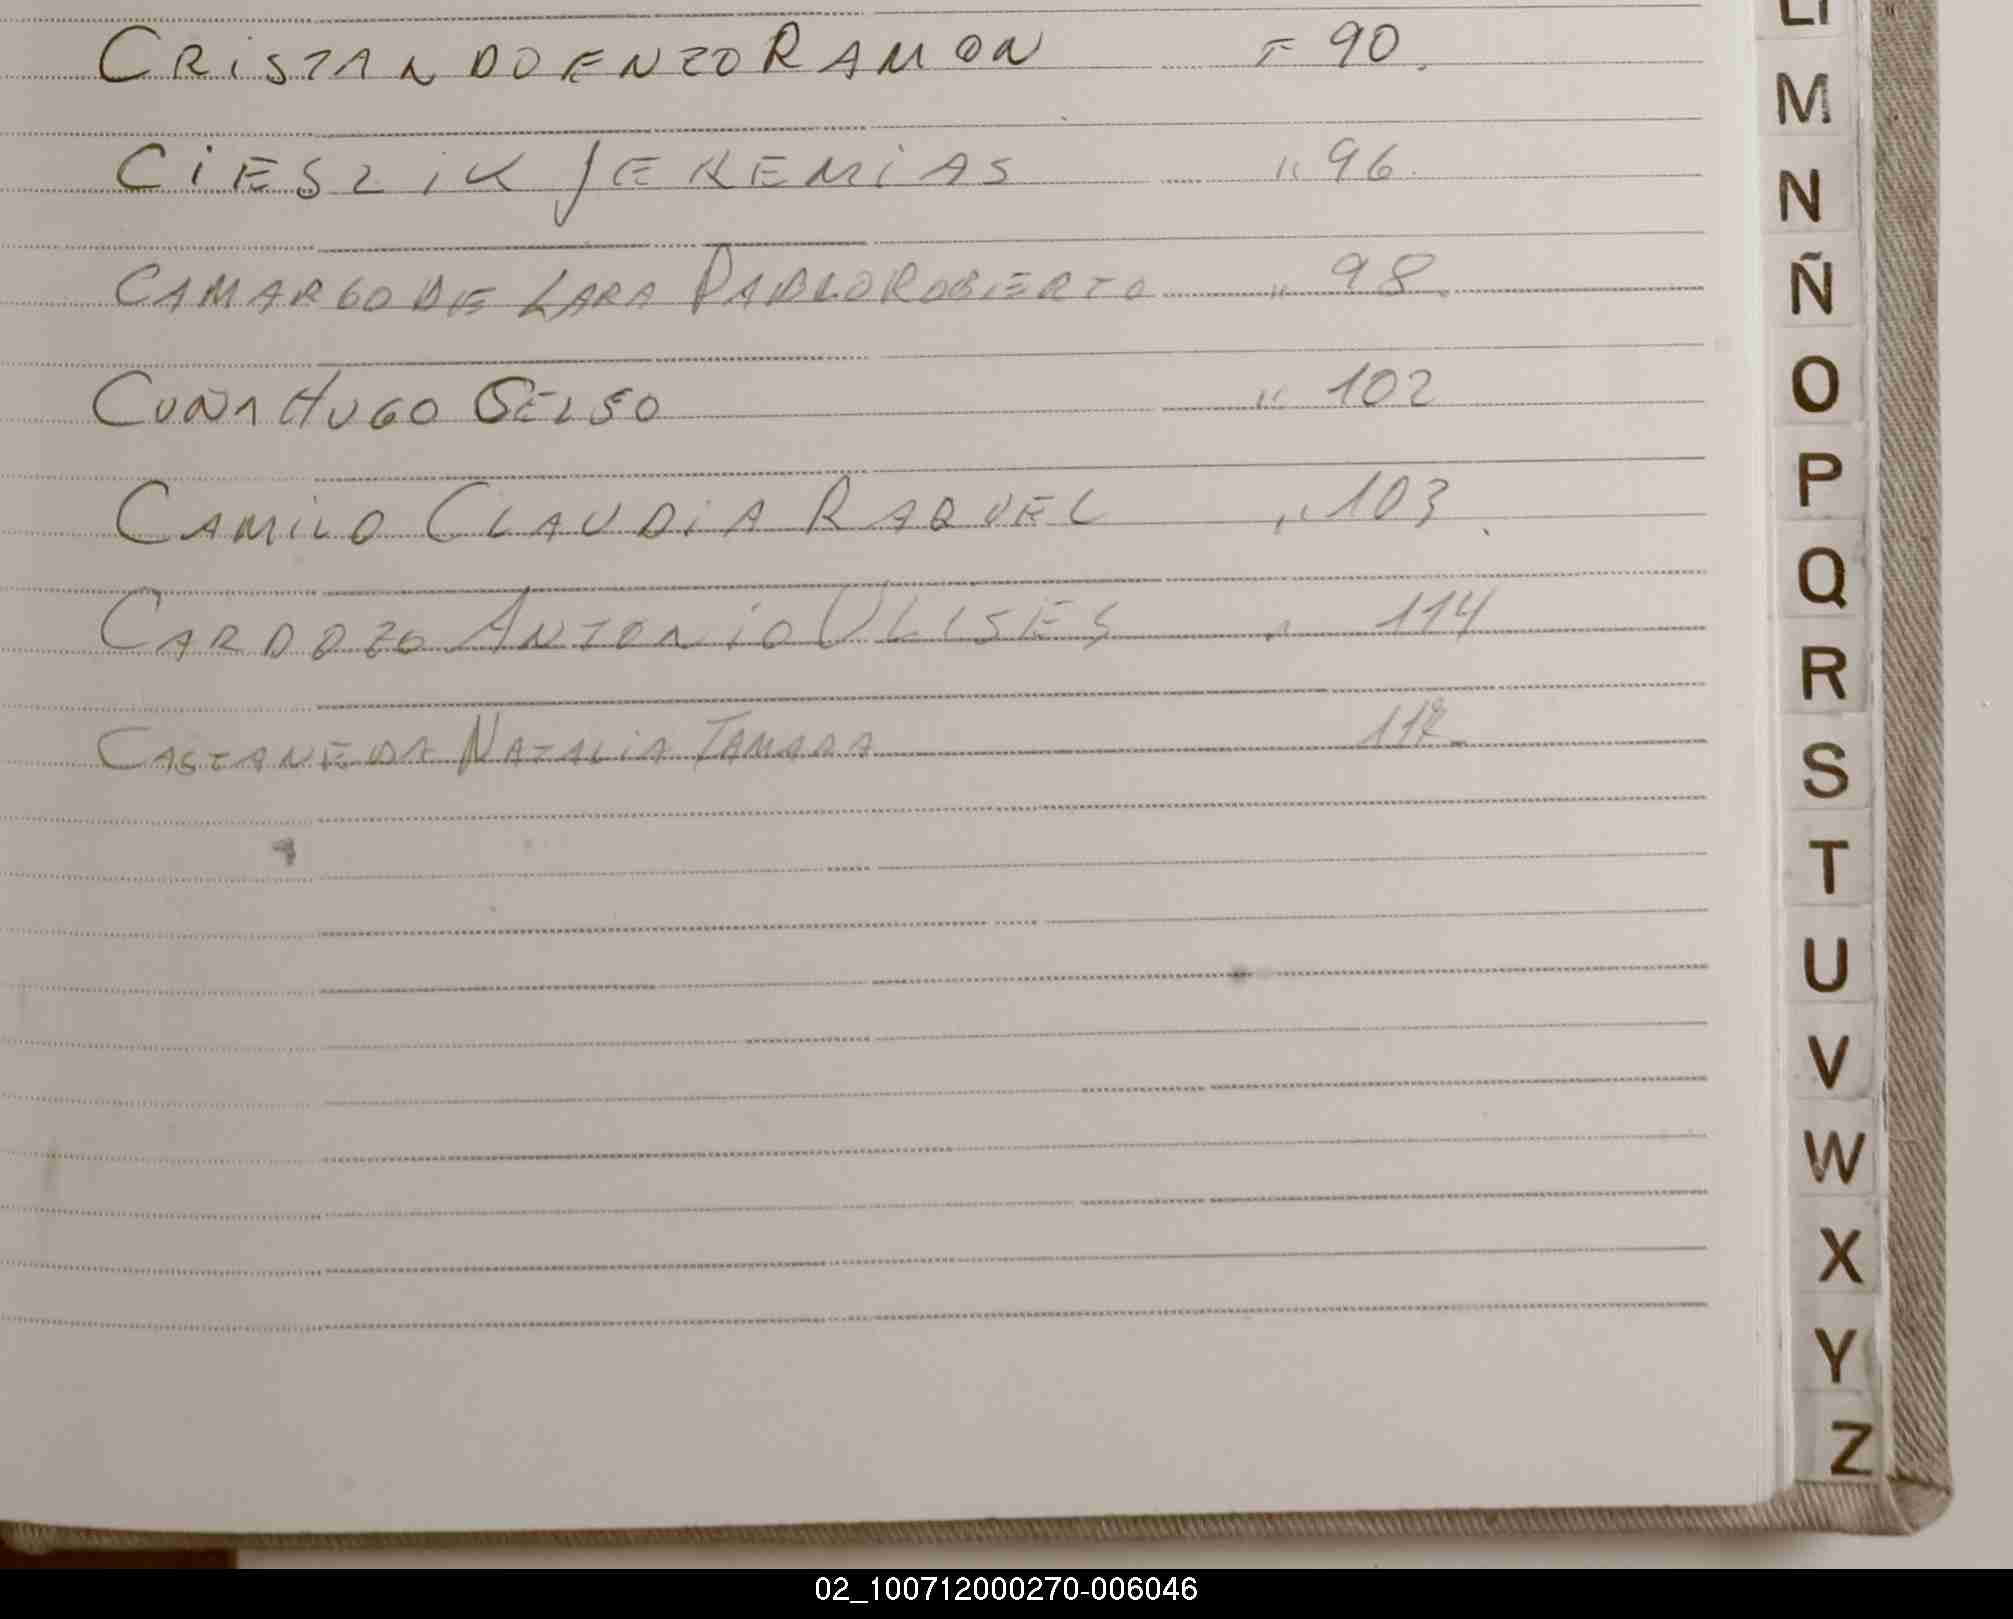 CRISTANDO ENZO RAMON F 90.
CIESZIK JEREMIAS " 96.
CAMARGO DE LARA PABLO ROBERTO " 98.
CUÑA HUGO CELSO " 102
CAMILO CLAUDIA RAQUEL " 103.
CARDOZO ANTONIO ULISES " 114
CASTANEDA NATALIA TAMARA
LI
M
N
Ñ
O
P
Q
R
S
T
U
V
W
X
Y
Z
02_100712000270-006046